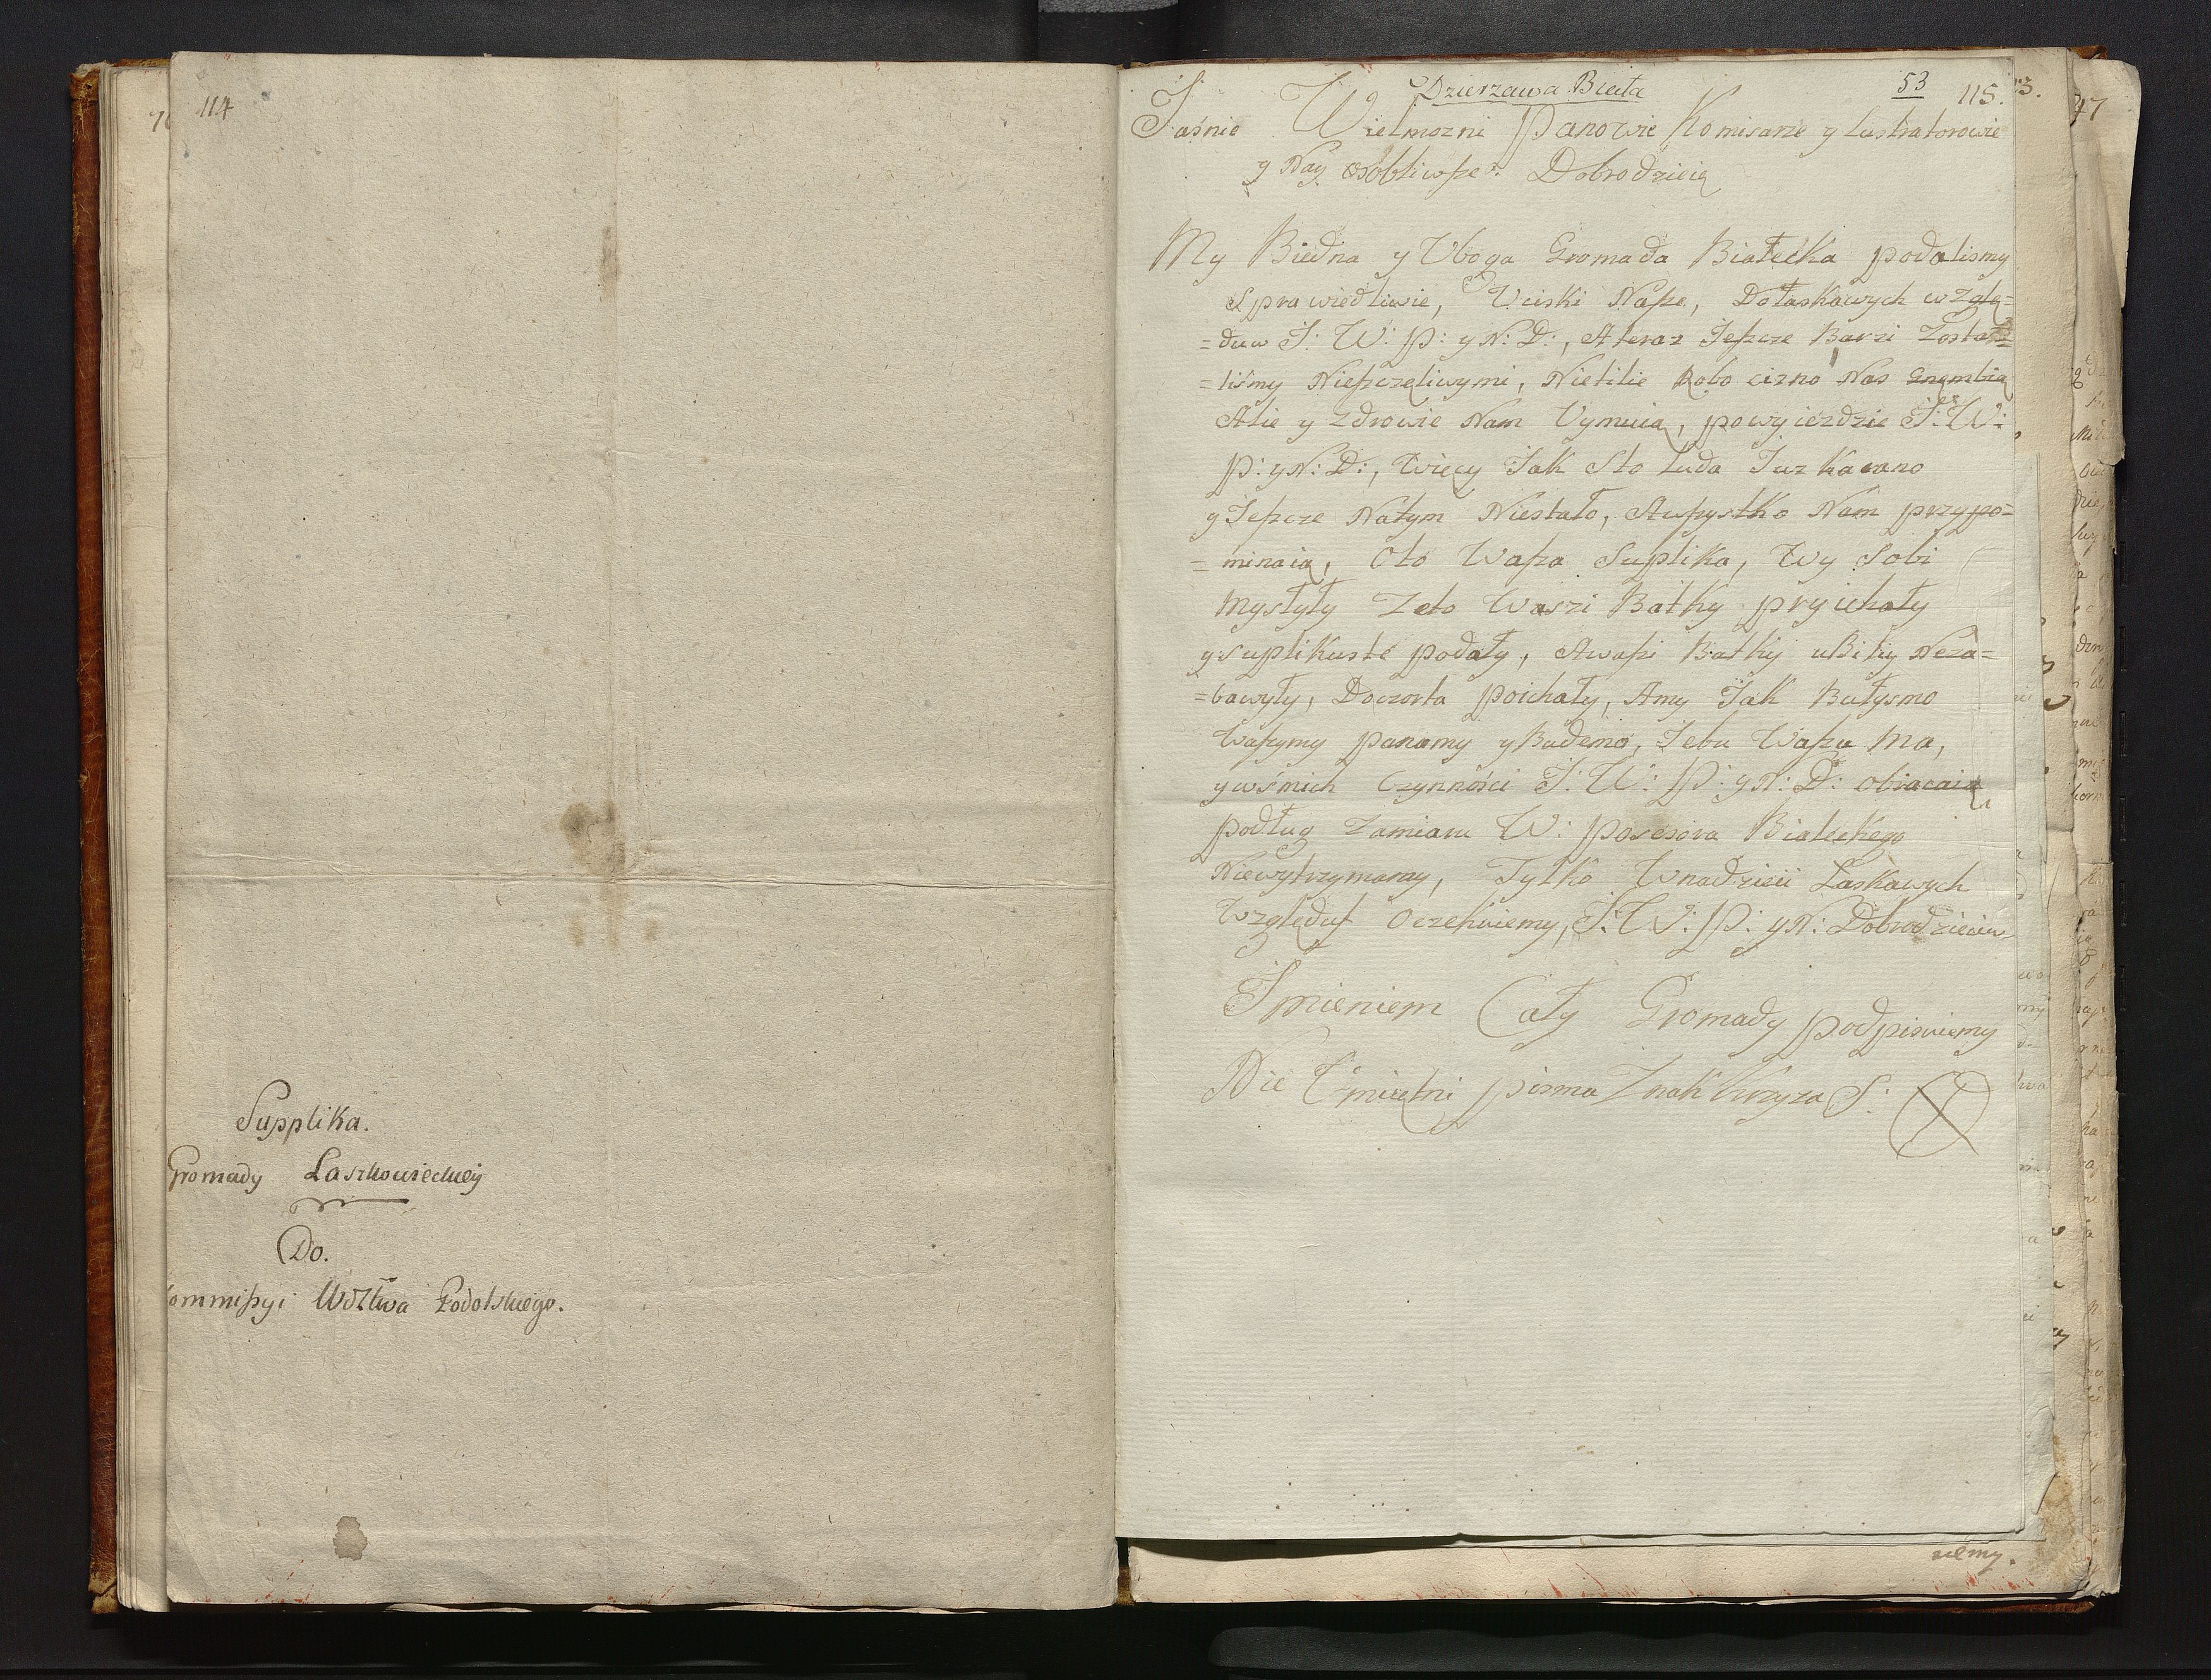 114
Supplika.
Gromady Laszkowieckiey
Do.
ommissyi Wdztwa Podolskiego.
Dzierzawa Biała
53
115.
Jaśnie Wielmozni Panowie Komisarze y Lustratorowie
y Nay osobliwsze Dobrodzieią
My Biedna y Uboga Gromada Białecka podalismy
Sprawiedliwie, Uciski Nasze, Dołaskawych wzglę=
=duw J: W: P: y N: D:, A teraz Jeszcze Barzi Zosta
=liśmy Nieszczęliwymi, Nietilie Robocizno Nas Gnębią
Alie y zdrowie Nam Uymuią, powyieździe J: W:
P: y N: D:, więcy Jak Sto Luda Juz karano
y Jeszcze Natym Niestało, Awszystko Nam przypo=
=minaią, Oto Wasza Suplika, Wy Sobi
Mysłyły Zeto Waszi Bathy pryichały
y Suplikuste podały, Awaszi Bathy ubiliy Neza=
=bawyły, Doczorta poichały, Amy Jak Bułysmo
Waszymy panamy y Budemo, Jebu Waszu Ma,
ywśmich Czynności J: W: P: y N: D: obracaią
podług zamiaru W: Posesora Białeckego
Niewytrzymamy, Tylko Wnadzieii Laskawych
Względuf Oczekuiemy, J: W: P: y N: Dobrodzieiuw
Jmieniem Cały Gromady podpisuiemy
Nie Umiętni pisma Znak krzyza S:
47
uemy.